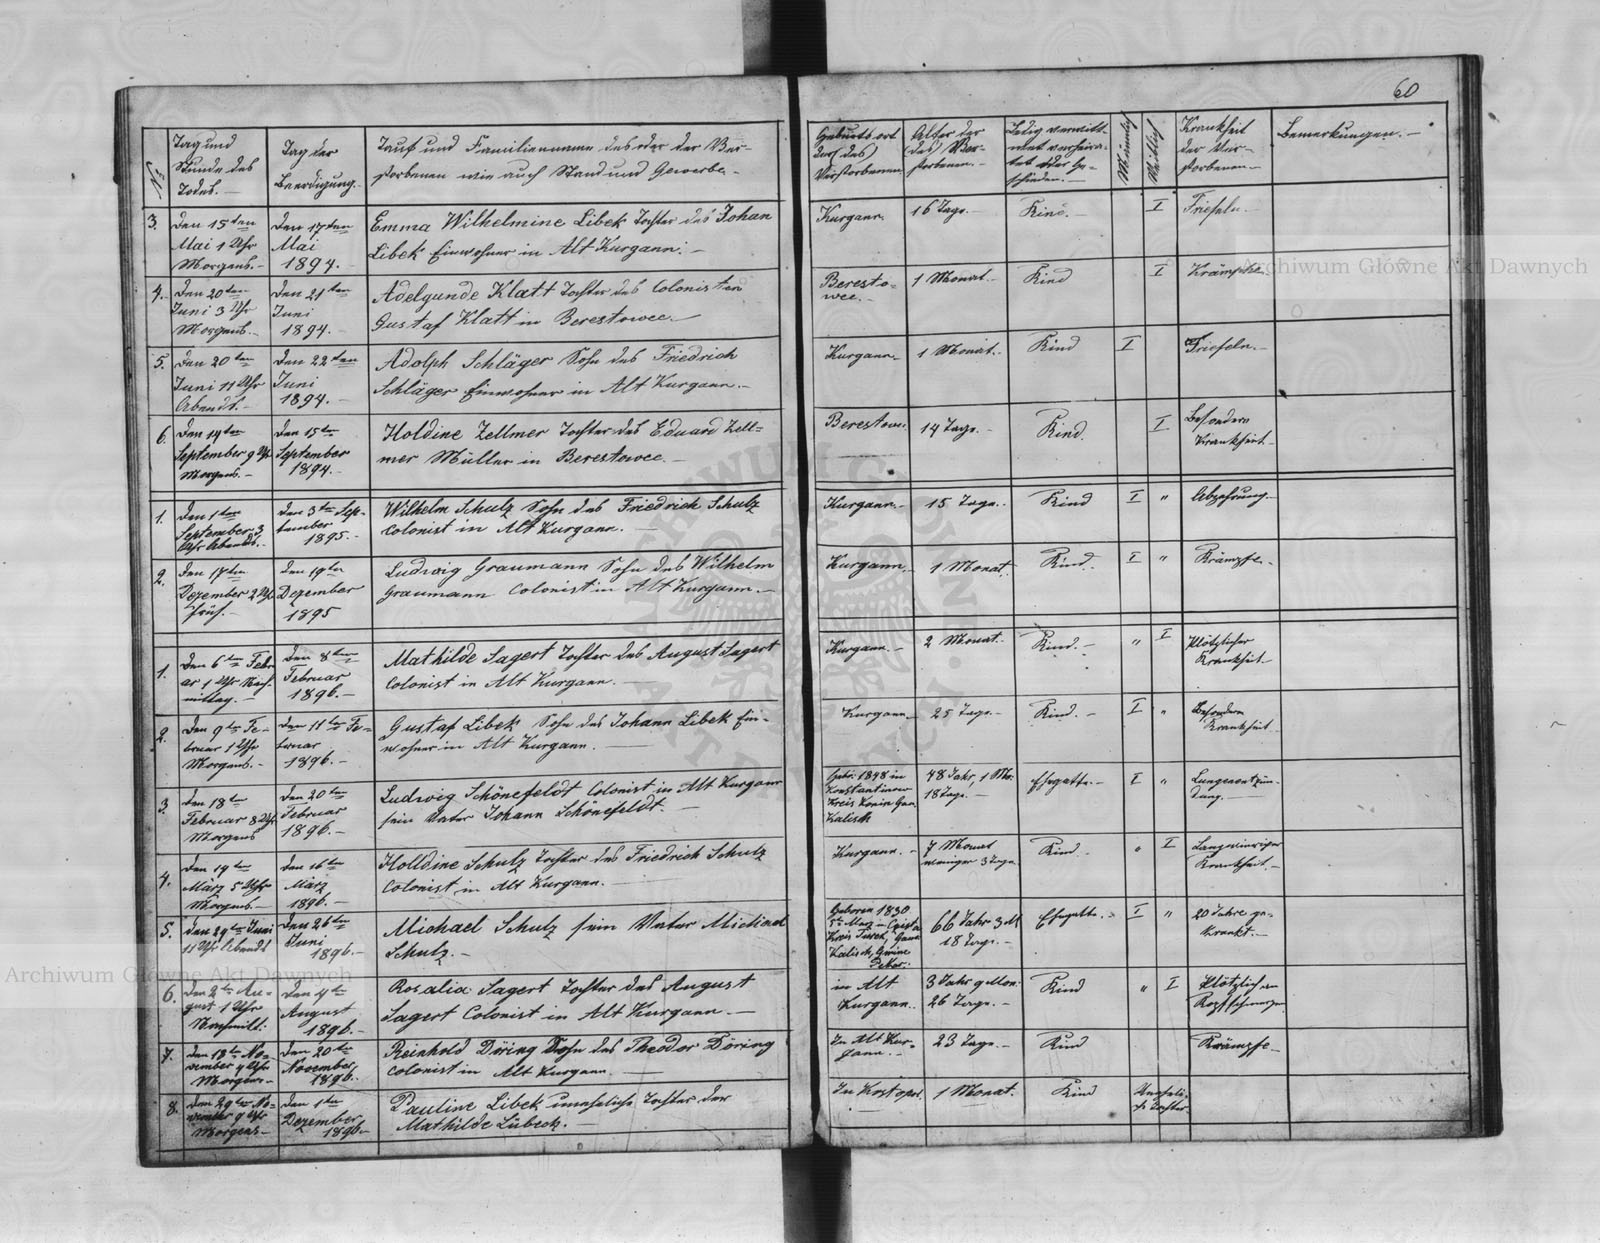 60
No
Tag und
Stunde des
Todes.
Tag der
Beerdigung.
Tauf und Familienname des oder der Ver-
storbenen wie auch Stand und Gewerbe.
Geburtsort
der (des)
Verstorbenen.
Alter der
(des) Ver-
storbenen.
Ledig verwitt-
wet verheira-
tet oder Ge-
schieden.
Männlich
Weiblich
Krankheit
der Ver-
storbenen
Bemerkungen.
3.
Den 15ten
Mai 1 Uhr
Morgens.
Den 17ten
Mai
1894.
Emma Wilhelmine Libek Tochter des Johan
Libek Einwohner in Alt Kurgann.
Kurgann.
16 Tage.
Kind.
I
Friefeln.
4.
Den 20ten
Juni 3 Uhr
Morgens.
Den 21ten
Juni
1894.
Adelgunde Klatt Tochter des Colonisten
Gustaf Klatt in Berestowec.
Beresto-
wec.
1 Monat.
Kind
I
Krämpfe
5.
Den 20ten
Juni 11 Uhr
Abends.
Den 22ten
Juni
1894.
Adolph Schläger Sohn des Friedrich
Schläger Einwohner in Alt Kurgann.
Kurgann.
1 Monat.
Kind
I
Friefeln.
6.
Den 14ten
September 9 Uhr
Morgens.
Den 15ten
September
1894.
Holdine Zellmer Tochter des Eduard Zell-
mer Müller in Berestowec.
Berestowec
14 Tage.
Kind.
I
Besondere
Krankheit.
1.
Den 1ten
September 3
Uhr Abends.
Den 3ten Sep-
tember
1895.
Wilhelm Schulz Sohn des Friedrich Schulz
Colonist in Alt Kurgann.
Kurgann.
15 Tage.
Kind
I
"
Abzehrung
2.
Den 17ten
Dezember 2 Uhr
Früh.
Den 19ten
Dezember
1895
Ludwig Graumann Sohn des Wilhelm
Graumann Colonist in Alt Kurgann.
Kurgann.
1 Monat.
Kind.
I
"
Krämpfe.
1.
Den 6ten Febru-
ar 1 Uhr Nach-
mittag.
Den 8ten
Februar
1896.
Mathilde Sagert Tochter des August Sagert
Colonist in Alt Kurgann.
Kurgann.
2 Monat.
Kind.
"
I
Plötzlicher
Krankheit
2.
Den 9ten Fe-
bruar 1 Uhr
Morgens.
Den 11ten Fe-
bruar
1896.
Gustaf Libek Sohn des Johann Libek Ein-
wohner in Alt Kurgann.
Kurgann.
25 Tage.
Kind.
I
"
Besondere
Krankheit
3.
Den 18ten
Februar 8 Uhr
Morgens
Den 20ten
Februar
1896.
Ludwig Schönefeldt Colonist in Alt Kurgann
sein Vater Johann Schönefeldt.
Gebr. 1848 in
Konstantinow
Kreis Konin Gou.
Kalisch
48 Jahr, 1 Mo.
18 Tage.
Ehegatte.
I
"
Lungenentzün-
dung.
4.
Den 14ten
März 5 Uhr
Morgens.
Den 16ten
März
1896.
Holldine Schulz Tochter des Friedrich Schulz
Colonist in Alt Kurgann.
Kurgann.
7 Monat
weniger 3 Tage
Kind.
"
I
Langwieriger
Krankheit.
5.
Den 24ten Juni
11 Uhr Abends
Den 26ten
Juni
1896.
Michael Schulz sein Vater Michael
Schulz.
Geboren 1830
5ten März
Kreis Turek, Gou.
Kalisch, Gmine
66 Jahr 3 M.
18 Tage.
Ehegatte.
I
"
20 Jahre ge-
krankt.
6.
Den 2ten Au-
gust 1 Uhr
Nachmitt.
Den 4ten
August
1896.
Rosalia Sagert Tochter des August
Sagert Colonist in Alt Kurgann.
in Alt
Kurgann.
3 Jahr 9 Mon.
26 Tage.
Kind
"
I
Plötzlichen
Kopfschmerzen
7.
Den 18ten No-
vember 4 Uhr
Morgens
Den 20ten
November
1896.
Reinhold Döring Sohn des Theodor Döring
Colonist in Alt Kurgann
In Alt Kur-
gann.
23 Tage.
Kind
Krämpfe
8.
Den 29ten No-
vember 9 Uhr
Morgens
Den 1ten
Dezember
1896.
Pauline Libek uneheliche Tochter der
Mathilde Lübeck.
In Kostopol.
1 Monat.
Kind
Uneheli-
che Tochter
Archiwum Główne Akt Dawnych
Archiwum Główne Akt Dawnych
ARCHIWUM GŁÓWNE AKT DAWNYCH